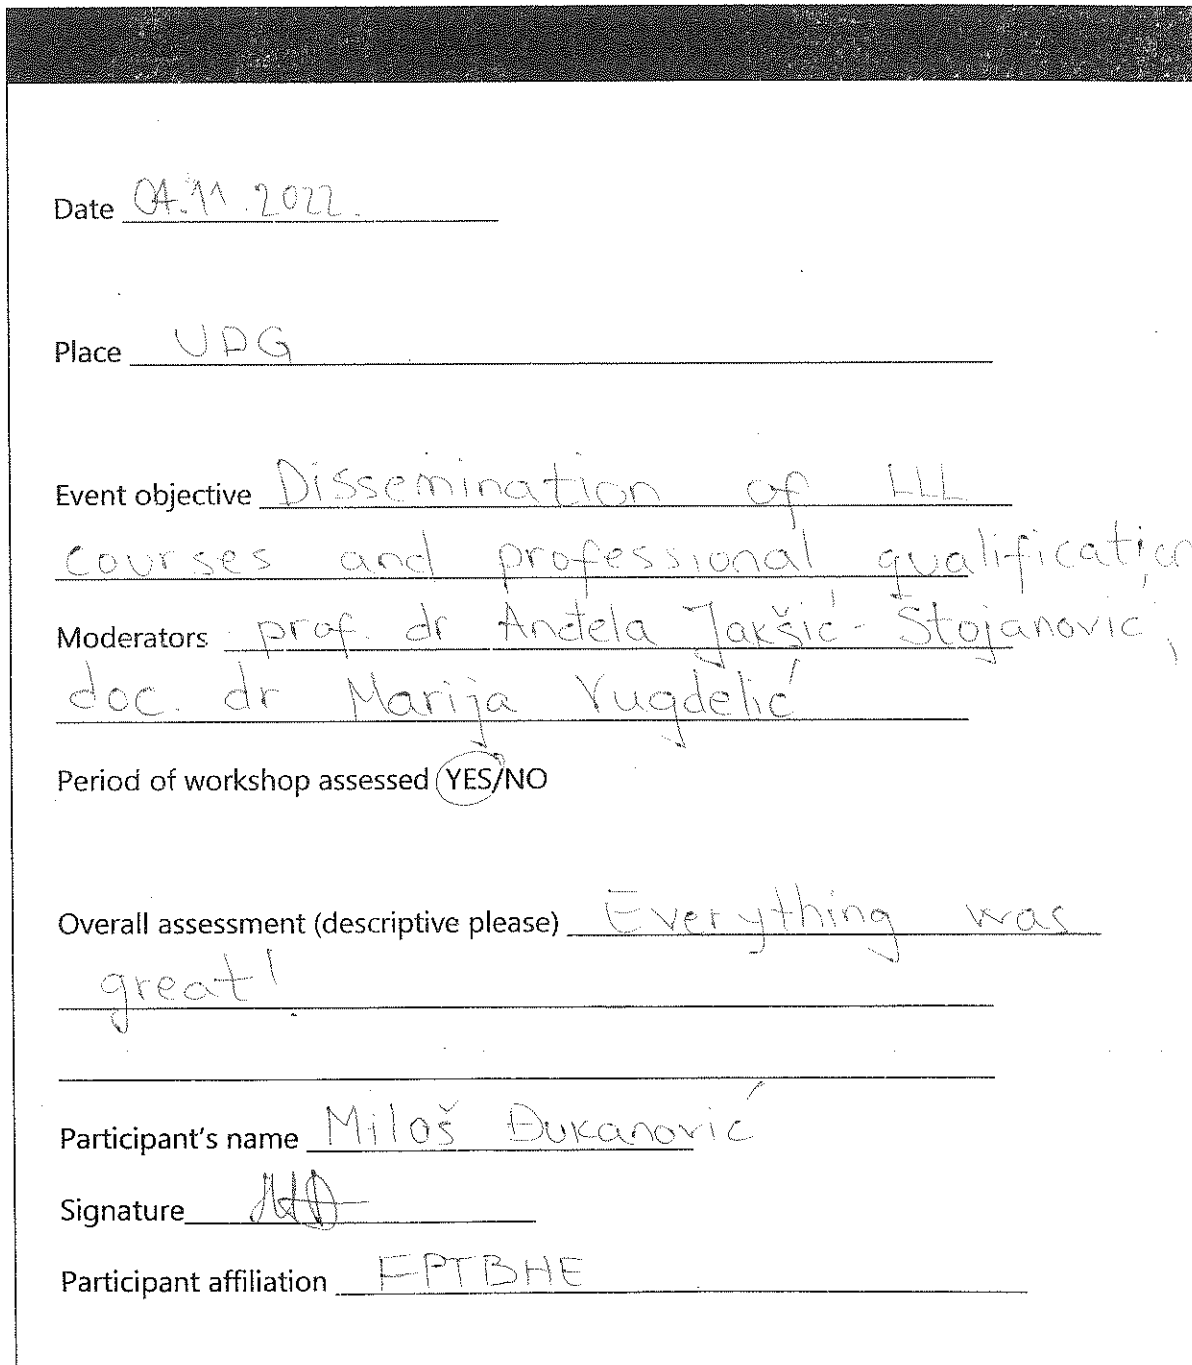 Date 04.11.2022.
Place UDG
Event objective Dissemination of LLL
courses and professional qualification
Moderators prof. dr Anđela Jakšić-Stojanović,
doc. dr Marija Vugdelić
Period of workshop assessed YES/NO
Overall assessment (descriptive please) Everything was
great!
Participant's name Miloš Đukanović
Signature
Participant affiliation FPTBHE